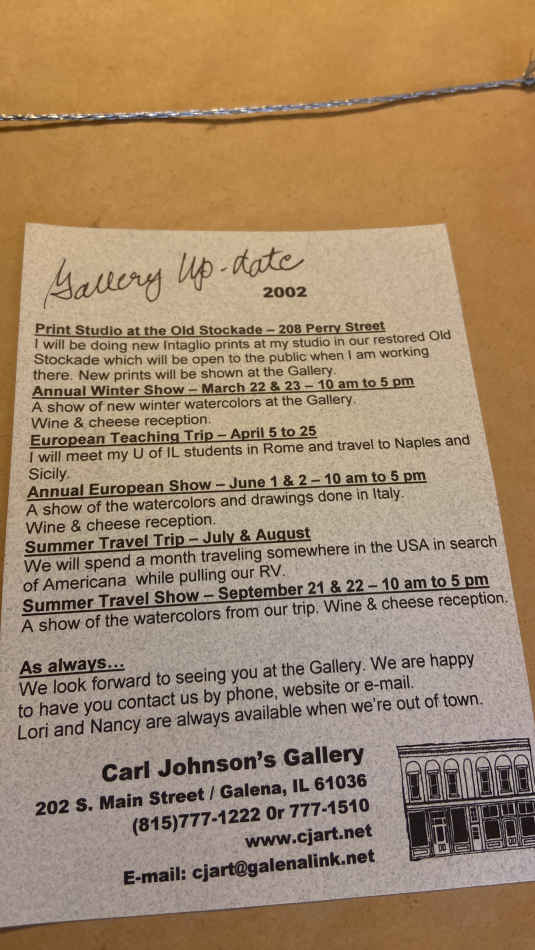 Gallery Up-date
2002
Print Studio at the Old Stockade – 208 Perry Street
I will be doing new Intaglio prints at my studio in our restored Old
Stockade which will be open to the public when I am working
there. New prints will be shown at the Gallery.
Annual Winter Show – March 22 & 23 – 10 am to 5 pm
A show of new winter watercolors at the Gallery.
Wine & cheese reception.
European Teaching Trip – April 5 to 25
I will meet my U of IL students in Rome and travel to Naples and
Sicily.
Annual European Show – June 1 & 2 – 10 am to 5 pm
A show of the watercolors and drawings done in Italy.
Wine & cheese reception.
Summer Travel Trip – July & August
We will spend a month traveling somewhere in the USA in search
of Americana while pulling our RV.
Summer Travel Show – September 21 & 22 – 10 am to 5 pm
A show of the watercolors from our trip. Wine & cheese reception.
As always...
We look forward to seeing you at the Gallery. We are happy
to have you contact us by phone, website or e-mail.
Lori and Nancy are always available when we're out of town.
Carl Johnson's Gallery
202 S. Main Street / Galena, IL 61036
(815)777-1222 0r 777-1510
www.cjart.net
E-mail: cjart@galenalink.net